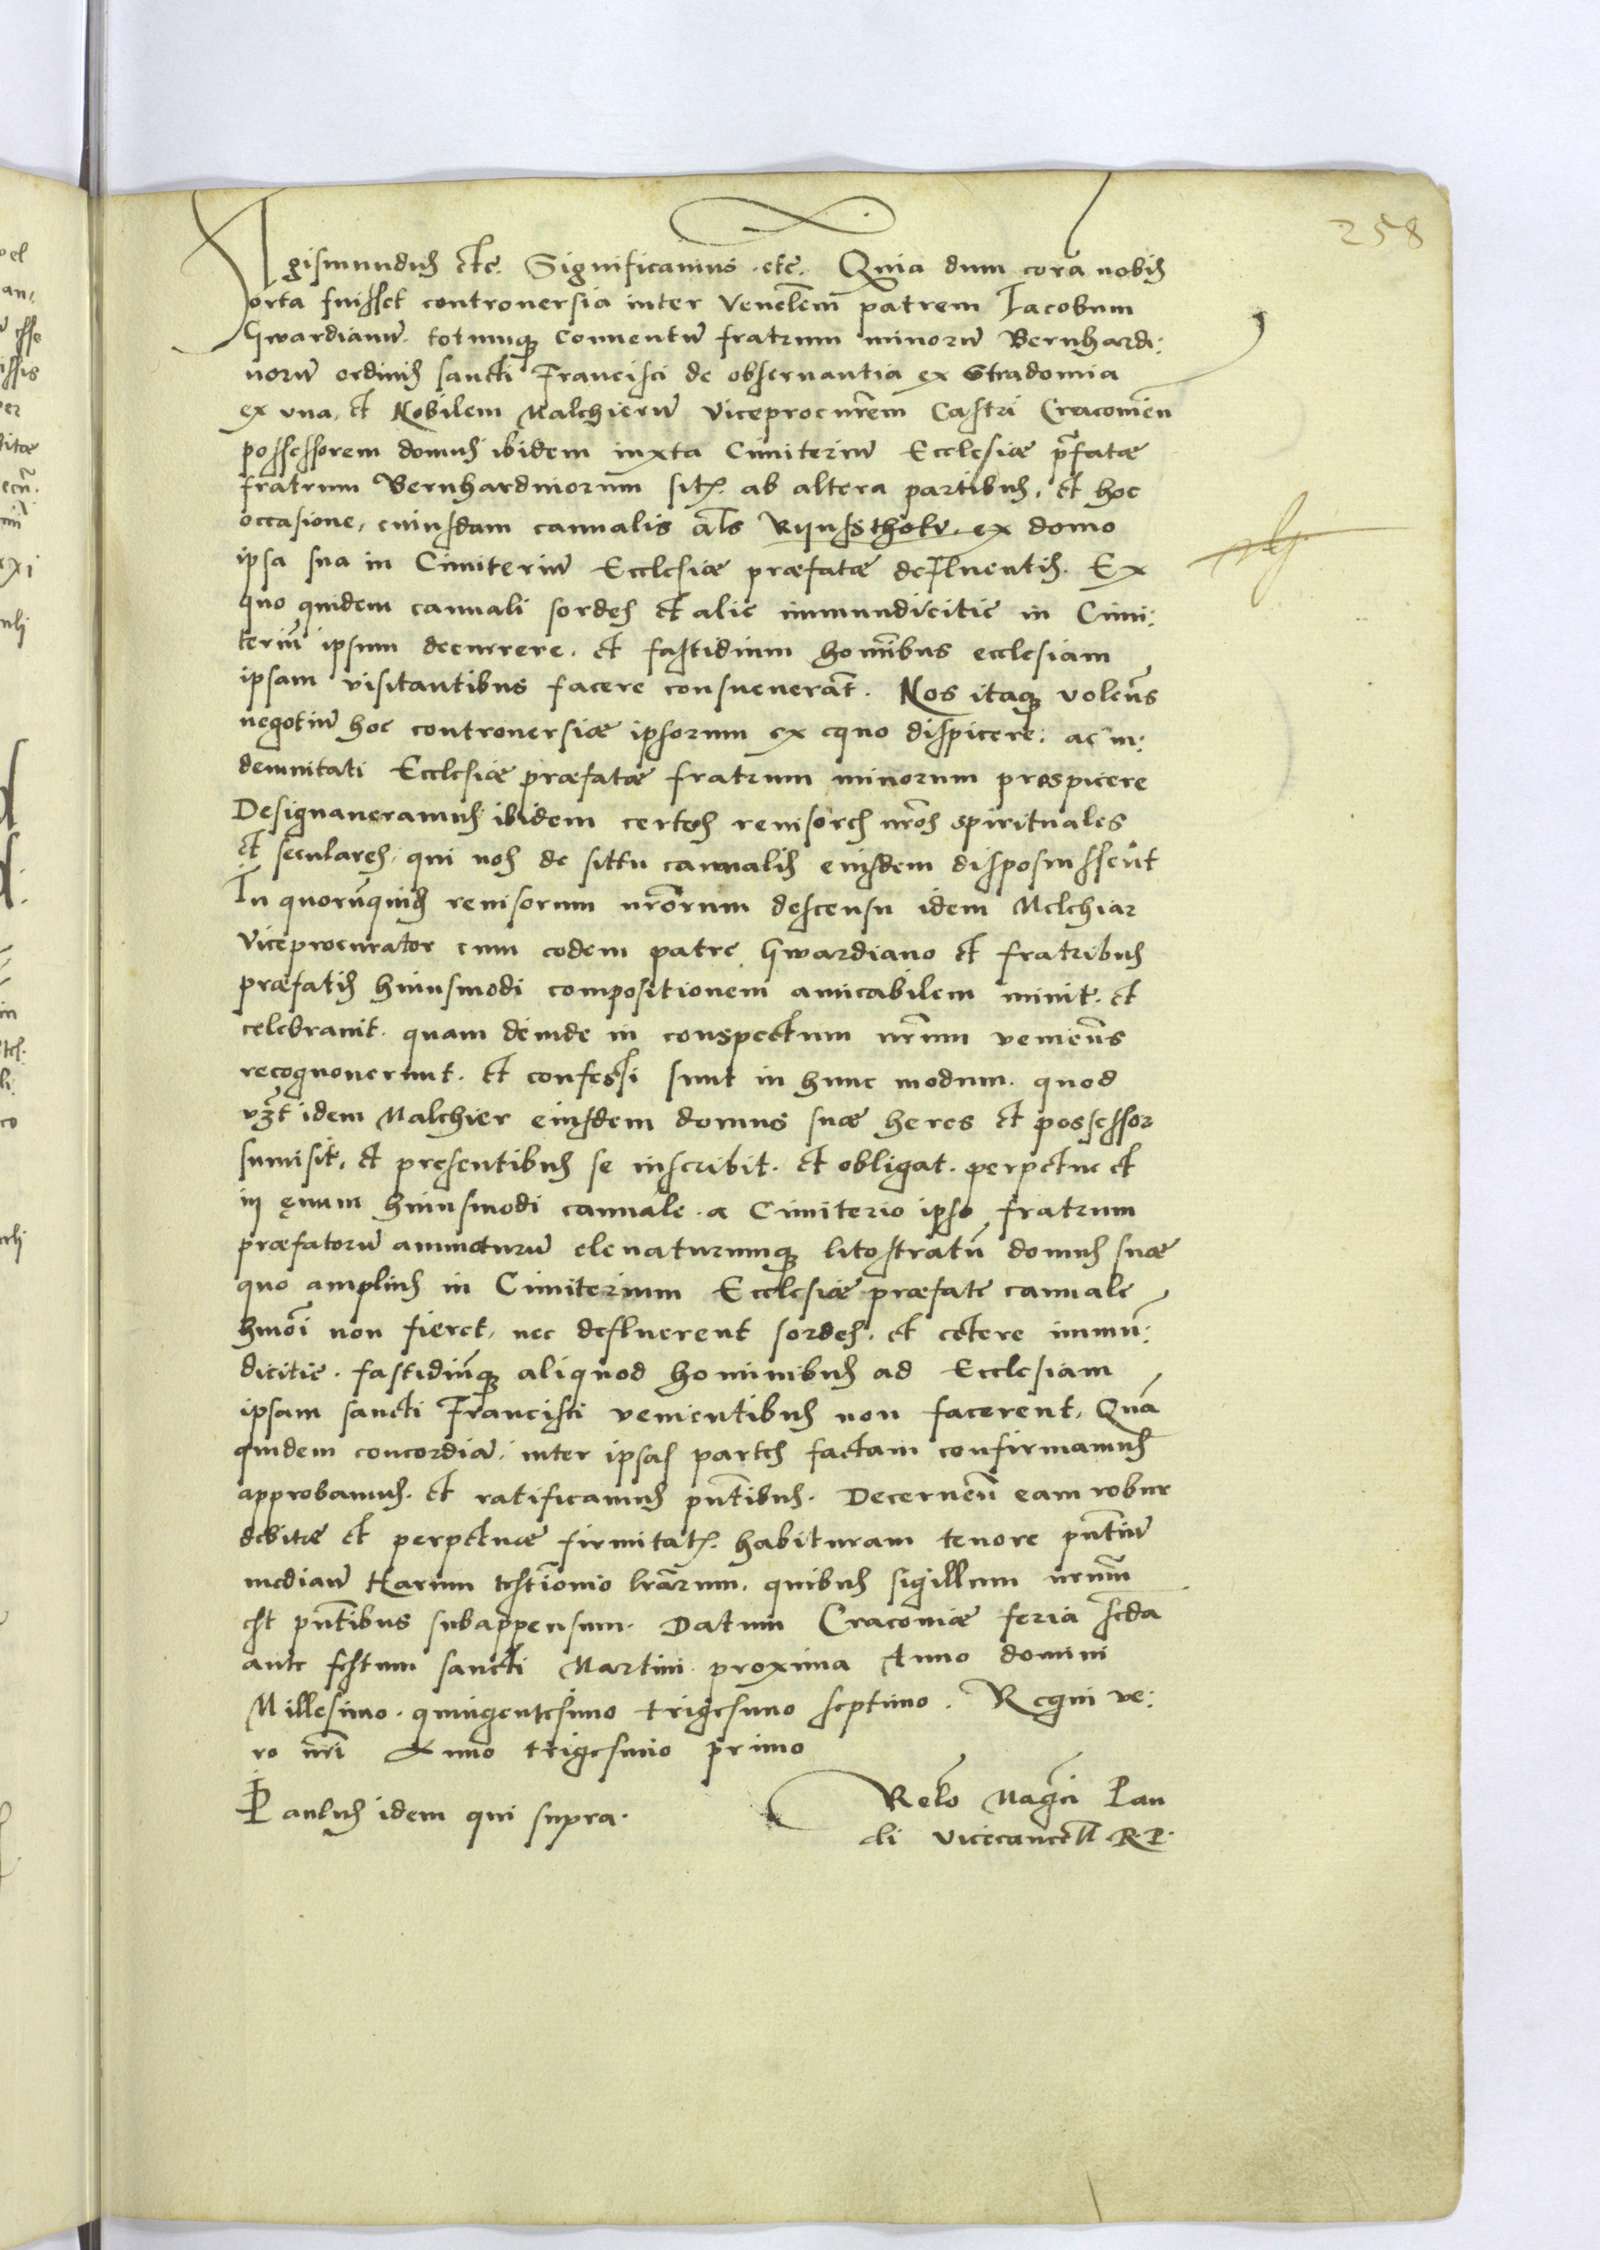 258
Sigismundus etc. Significamus etc. Quia dum corā nobis
orta fuisset controuersia inter Venelem̄ patrem Iacobum
Gwardianū totumq; Conuentū fratrum minorū Bernhardi:
norū ordinis sancti Francisci de obseruantia ex Stradomia
ex vna, et Nobilem Malchierū Viceprocur̄em Castri Cracouien̄
possessorem domus ibidem iuxta Cimiteriū Ecclesiæ p̄fatæ
fratrum Bernhardinorum sit. ab altera partibus, et hoc
occasione, cuiusdam cannalis al̄s Rynsthokv ex domo
ipsa sua in Cimiteriū Ecclesiæ præfatæ defluentis. Ex
quo quidem cannali sordes et alie immundicitie in Cimi:
teriū ipsum decurrere, et fastidium hom̄ibus ecclesiam
ipsam visitantibus facere consueuerāt. Nos itaq; volen̄s
negotiū hoc controuersiæ ipsorum ex equo dispicere: ac in:
demnitati Ecclesiæ præfatæ fratrum minorum prospicere
Designaueramus ibidem certos reuisores nr̄os spirituales
et seculares, qui nos de sittu cannalis eiusdem disposuissent
In quorūquidē reuisorum nr̄orum descensu idem Melchiar
Viceprocurator cum eodem patre Gwardiano et fratribus
præfatis huiusmodi compositionem amicabilem miniit. et
celebrauit. quam deinde in conspectum nr̄um venien̄s
recognouerunt. et confessi sunt in hunc modum. quod
vz̄t idem Malchier eiusdem domus suæ heres et possessor
sumisit, et presentibus se inscribit. et obligat. perpetue et
in ęuum huiusmodi cannale a Cimiterio ipso fratrum
præfatorū amoturū eleuaturumq; litostratū domus suæ
quo amplius in Cimiterium Ecclesiæ præfate cannale
hmōi non fieret, nec defluerent sordes, et cetere immū:
dicitie. fastidiūq; aliquod hominibus ad Ecclesiam
ipsam sancti Francisci venientibus non facerent, Quā
quidem concordiā inter ipsas partes factam confirmamus
approbamus. et ratificamus pn̄tibus. Decernen̄ eam robur
debitæ et perpetuæ firmitat. habituram tenore pn̄tiū
mediaū Harum testīonio lr̄arum, quibus sigillum nrūm
est pn̄tibus subappensum. Datum Cracouiæ feria scda
ante festum sancti Martini proxima Anno domini
Millesimo quingentesimo trigesimo septimo. Regni ve:
ro nr̄i Anno trigesimo primo
Paulus idem qui supra.
Relō Magc̄i Pau
li vicecancell R. P.